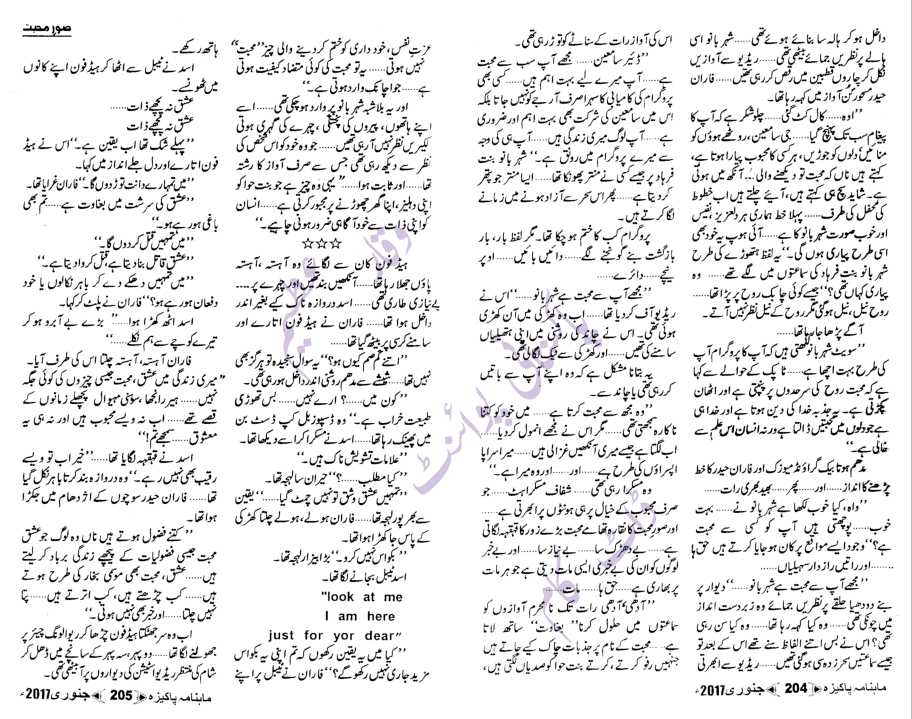 داخل ہو کر ہالہ سا بنائے ہوئے تھی ..... شہر بانو اسی
ہالے پر نظریں جمائے بیٹھی تھی ..... ریڈیو سے آوازیں
نکل کر چاروں قطبین میں رقص کر رہی تھیں ..... فاران
حیدر سحور کن آواز میں کہہ رہا تھا۔
"اوہ ..... کال کٹ گئی ..... چلو شکر ہے کہ آپ کا
پیغام سب تک پہنچ گیا ..... جی سامعین، روٹھے ہوؤں کو
منائیں، دلوں کو جوڑیں، ہر کسی کا محبوب پیارا ہوتا ہے،
کہتے ہیں ناں کہ محبت تو دیکھنے والی ... آنکھ میں ہوتی
ہے۔ شاید سچ ہی کہتے ہیں، آیئے چلتے ہیں اب خطوط
کی محفل کی طرف ..... پہلا خط ہماری ہر دلعزیز، نفیس
اور خوب صورت شہر بانو کا ہے ..... آئی ہوپ یہ خود بھی
اسی طرح پیاری ہوں گی۔" یہ لفظ ہتھوڑے کی طرح
شہر بانو بنت فرہاد کی سماعتوں میں لگے تھے ..... وہ
پیاری کہاں تھی؟" جیسے کوئی چابک روح پر پڑا تھا .....
روح نیل، نیل ہو گئی مگر روح کے نیل نظر نہیں آتے۔
آگے پڑھا جا رہا تھا .....
"سویٹ شہر بانو لکھتی ہیں کہ آپ کا پروگرام آپ
کی طرح بہت اچھا ہے ..... ٹاپک کے حوالے سے کہا
ہے کہ محبت روح کی سرحدوں پر پنپتی ہے اور اٹھان
پکڑتی ہے۔ یہ جذبہ خدا کی دین ہوتا ہے اور خدا ہی
ہے جو دلوں میں محبتیں ڈالتا ہے ورنہ انسان اس علم سے
خالی ہے۔"
مدھم ہوتا بیک گراؤنڈ میوزک اور فاران حیدر کا خط
پڑھنے کا انداز ..... اور ..... پھر ..... بھید بھری رات .....
"واہ، کیا خوب لکھا ہے شہر بانو نے ..... بہت
خوب ..... پوچھتی ہیں آپ کو کسی سے محبت
ہے؟" وجود ایسے مواقع پر کان ہو جایا کرتے ہیں حق ہا
..... اور راتیں رازدار سہیلیاں .....
"مجھے آپ سے محبت ہے شہر بانو ....." دیوار پر
بنے دودھیا حلقے پر نظریں جمائے وہ زبردست انداز
میں چونکی تھی ..... وہ کیا کہہ رہا تھا ..... وہ کیا سن رہی
تھی؟ اس نے بس اتنے الفاظ سنے تھے اس کے بعد تو
جیسے سماعتیں سحر زدہ سی ہو گئی تھیں ..... ریڈیو سے ابھرتی
ماہنامہ پاکیزہ 204 جنوری 2017ء
اس کی آواز رات کے سناٹے کو توڑ رہی تھی۔
"ڈیئر سامعین ..... مجھے آپ سب سے محبت
ہے ..... آپ میرے لیے بہت اہم ہیں ..... کسی بھی
پروگرام کی کامیابی کا سہرا صرف آر جے کو نہیں جاتا بلکہ
اس میں سامعین کی شرکت بھی بہت اہم اور ضروری
ہے ..... آپ لوگ میری زندگی ہیں ..... آپ ہی کی وجہ
سے میرے پروگرام میں رونق ہے۔" شہر بانو بنت
فرہاد پر جیسے کسی نے منتر پھونکا تھا ..... ایسا منتر جو پتھر
کر دیتا ہے ..... پھر اس سحر سے آزاد ہونے میں زمانے
لگا کرتے ہیں۔
پروگرام کب کا ختم ہو چکا تھا۔ مگر لفظ بار، بار
بازگشت بنے گونجنے لگے ..... دائیں بائیں ..... اوپر
نیچے ..... دائرے .....
"مجھے آپ سے محبت ہے شہر بانو ....." اس نے
ریڈیو آف کر دیا تھا ..... اب وہ کھڑکی میں آن کھڑی
ہوئی تھی۔ اس نے چاند کی روشنی میں اپنی ہتھیلیاں
سامنے کی تھیں ..... اور کھڑکی سے ٹیک لگالی تھی۔
یہ بتانا مشکل ہے کہ وہ اپنے آپ سے باتیں
کر رہی تھی یا چاند سے۔
"وہ مجھ سے محبت کرتا ہے ..... میں خود کو کتنا
ناکارہ سمجھتی تھی ..... مگر اس نے مجھے انمول کر دیا .....
اب لگتا ہے جیسے میری آنکھیں غزالی ہیں ..... میرا سراپا
اپسراؤں کی طرح ہے ..... اور ..... اور وہ میرا ہے۔"
وہ مسکرا رہی تھی ..... شفاف مسکراہٹ ..... جو
صرف محبوب کے خیال پر ہی ہونٹوں پر ابھرتی ہے .....
اور صور محبت کا نقارہ تھا ..... محبت بڑے زور کا قہقہہ لگاتی
ہے ..... بے دھڑک سا ..... بے نیاز سا ..... اور بے خبر
لوگوں کو ان کی بے خبری ایسی مات دیتی ہے جو ہر مات
پر بھاری ہے ..... حق ہا ..... مات .....
"آدھی، آدھی رات تک نا محرم آوازوں کو
سماعتوں میں حلول کرنا" بغاوت" ساتھ لاتا
ہے ..... محبت کے نام پر جذبات چاک کیے جاتے ہیں
جنہیں رفو کرتے، کرتے بنت حوا کو صدیاں لگتی ہیں،
صور محبت
عزت نفس، خود داری کو ختم کر دینے والی چیز "محبت"
نہیں ہوتی ..... یہ تو محبت کی کوئی متضاد کیفیت ہوتی
ہے ..... جو اچانک وارد ہوتی ہے۔"
اور یہ بلاشبہ شہر بانو پر وارد ہو چکی تھی ..... اسے
اپنے ہاتھوں، پیروں کی پختگی، چہرے کی گہری ہوتی
لکیریں نظر نہیں آ رہی تھیں ..... جو وہ خود کو اس شخص کی
نظر سے دیکھ رہی تھی جس سے صرف آواز کا رشتہ
تھا ..... اور ثابت ہوا ..... "یہی وہ چیز ہے جو بنت حوا کو
اپنی دہلیز، اپنا گھر چھوڑنے پر مجبور کرتی ہے ..... انسان
کو اپنی ذات سے خود آگاہی ضرور ہونی چاہیے۔"
☆☆☆
ہیڈ فون کان سے لگائے وہ آہستہ، آہستہ
پاؤں جھلا رہا تھا ..... آنکھیں بند تھیں اور چہرے پر ....
بے نیازی طاری تھی ..... اسد دروازہ ناک کیے بغیر اندر
داخل ہوا تھا ..... فاران نے ہیڈ فون اتارے اور
سامنے کرسی پر بیٹھ گیا تھا .....
"اتنے گم صم کیوں ہو؟" یہ سوال سنجیدہ تو ہرگز بھی
نہیں تھا ..... شیشے سے مدھم روشنی اندر داخل ہو رہی تھی۔
"کون میں .....؟ ارے نہیں ..... بس تھوڑی
طبیعت خراب ہے۔" وہ ڈسپوزبل کپ ڈسٹ بن
میں پھینک رہا تھا ..... اسد نے مسکرا کر اسے دیکھا تھا۔
"علامات تشویش ناک ہیں۔"
"کیا مطلب .....؟" حیران سا لہجہ تھا۔
"تمہیں عشق وشق تو نہیں چمٹ گیا ....." یقین
سے بھرپور لہجہ تھا ..... فاران ہولے، ہولے چلتا کھڑکی
کے پاس جا کھڑا ہوا تھا۔
"بکواس نہیں کرو۔" بڑا بیزار لہجہ تھا۔
اسد ٹیبل بجانے لگا تھا۔
"look at me
I am here
just for yor dear"
"کیا میں یہ یقین رکھوں کہ تم اپنی یہ بکواس
مزید جاری نہیں رکھو گے؟" فاران نے ٹیبل پر اپنے
ہاتھ رکھے۔
اسد نے ٹیبل سے اٹھا کر ہیڈ فون اپنے کانوں
میں ٹھونسے۔
عشق نہ پچھے ذات .....
عشق نہ پچھے ذات
"پہلے شک تھا اب یقین ہے۔" اس نے ہیڈ
فون اتارے اور دل جلے انداز میں کہا۔
"میں تمہارے دانت توڑ دوں گا۔" فاران غرایا تھا۔
"عشق کی سرشت میں بغاوت ہے ..... تم بھی
باغی ہو رہے ہو۔"
"میں تمہیں قتل کر دوں گا۔"
"عشق قاتل بنا دیتا ہے، قتل کروا دیتا ہے۔"
"میں تمہیں دھکے دے کر باہر نکالوں یا خود
دفعان ہو رہے ہو؟" فاران نے پلٹ کر کہا۔
اسد اٹھ کھڑا ہوا ....." بڑے بے آبرو ہو کر
تیرے کوچے سے ہم نکلے"
فاران آہستہ، آہستہ چلتا اس کی طرف آیا۔
"میری زندگی میں عشق، محبت جیسی چیزوں کی کوئی جگہ
نہیں ..... ہیر رانجھا، سوہنی مہیوال پچھلے زمانوں کے
قصے تھے ..... اب نہ ویسے محبوب ہیں اور نہ ہی یہ
معشوق ..... سمجھے تم!"
اسد نے قہقہہ لگایا تھا ....." خیر اب تو ویسے
رقیب بھی نہیں رہے۔" وہ دروازہ بند کرتا باہر نکل گیا
تھا ..... فاران حیدر سوچوں کے اژدھام میں جکڑا
ہوا تھا۔
"کتنے فضول ہوتے ہیں ناں وہ لوگ جو عشق
محبت جیسی فضولیات کے پیچھے زندگی برباد کر لیتے
ہیں ..... عشق، محبت بھی موسمی بخار کی طرح ہوتے
ہیں ..... کب چڑھتے ہیں، کب اترتے ہیں ..... پتا
نہیں چلتا ..... اور خبر بھی نہیں ہوتی۔"
اب وہ سر جھٹکتا ہیڈ فون چڑھا کر ریوالونگ چیئر پر
جھولنے لگا تھا ..... دوپہر، سہ پہر کے سانچے میں ڈھل کر
شام کی منتظر ریڈیو اسٹیشن کی دیواروں پر آ بیٹھی تھی۔
ماہنامہ پاکیزہ 205 جنوری 2017ء